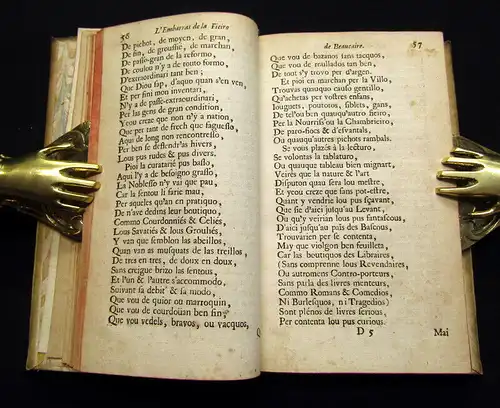 56 L'Embarras de la Fieiro
De pichot, de moyen, de gran,
De fin, de groussié, de marchan,
De passo-gran de la reformo,
De coulou n'y a de touto formo,
D'extraourdinari tant ben;
Que Diou sap, d'aquo quan s'en ven,
Et per fini mon inventari,
N'y a de passo-extraourdinari,
Per las gens de gran condition,
Yeou creze que non n'y a nation,
Que per tant de frech que faguesso,
Aqui de long non rencountresso
Per ben se deffendr'as hivers,
Lous pus rudes & pus divers.
Pioi la curatarié pus basso,
Aqui l'y a de besoigno grasso,
La Noblesso n'y vai que pau,
Car la sentou li farié mau,
Per aqueles qu'an en pratiquo,
De n'ave dedins leur boutiquo,
Commo Courdonniés & Celiés,
Lous Savatiés & lous Groulhés,
Y van que semblon las abeillos,
Quan van as musquats de las treillos,
De tres en tres, de doux en doux,
Sans creigne brizo las sentous,
Et l'un & l'autre s'accommodo,
Suivant sa debit' & sa modo,
Que vou de quior ou marroquin,
Que vou de courdouan ben fin,
Que vou vedels, bravos, ou vacquos,
Q
de Beaucaire. 57
Que vou de bazanos tans tacquos,
Que vou de traillados tan ben,
De tout s'y trovo per d'argen.
Et pioi en marchan per la Villo,
Trouvas quauquo causo gentillo,
Qu'achetas per vostres enfans,
Jouguets, poutotos, siblets, gans,
De tel'ou ben quauqu'autro fieiro,
Per la Nourriss'ou la Chambrieiro,
De paro-fiocs & d'esvantals,
Ou quauqu'autres pichots rambals.
Se vous plazés à la lecturo,
Se voulontas la tablaturo,
Ou quauque tableau bien mignart,
Veirés que la nature & l'art
Disputon quau sera lou mestre,
Et yeou creze que sans pot-estre,
Quant y vendrié lou pus sçavant,
Que sie d'aici jusqu'au Levant,
Ou qu'y veirian lous pus fantascous,
D'aici jusqu'au païs des Bascous,
Trouvarien per se contenta,
May que violgon ben feuilleta,
Car las boutiquos des Libraires,
(Sans comprenne lous Revendaires,
Ou autromens Contro-porteurs,
Sans parla des livres menteurs,
Commo Romans & Comedios,
Ni Burlesquos, ni Tragedios)
Sont plénos de livres serious,
Per contenta lou pus curious.
D 5 Mai